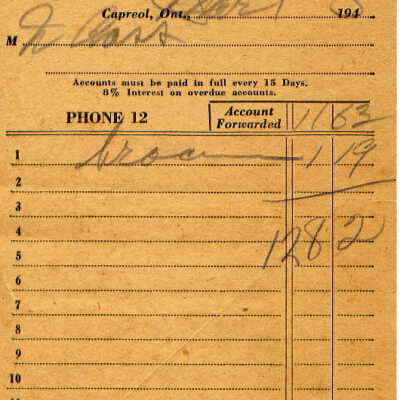 Capreol, Ont., 194
M
Accounts must be paid in full every 15 Days.
8% Interest on overdue accounts.
PHONE 12 Account Forwarded 11 63
1 1 19
2
3
4 12 82
5
6
7
8
9
10